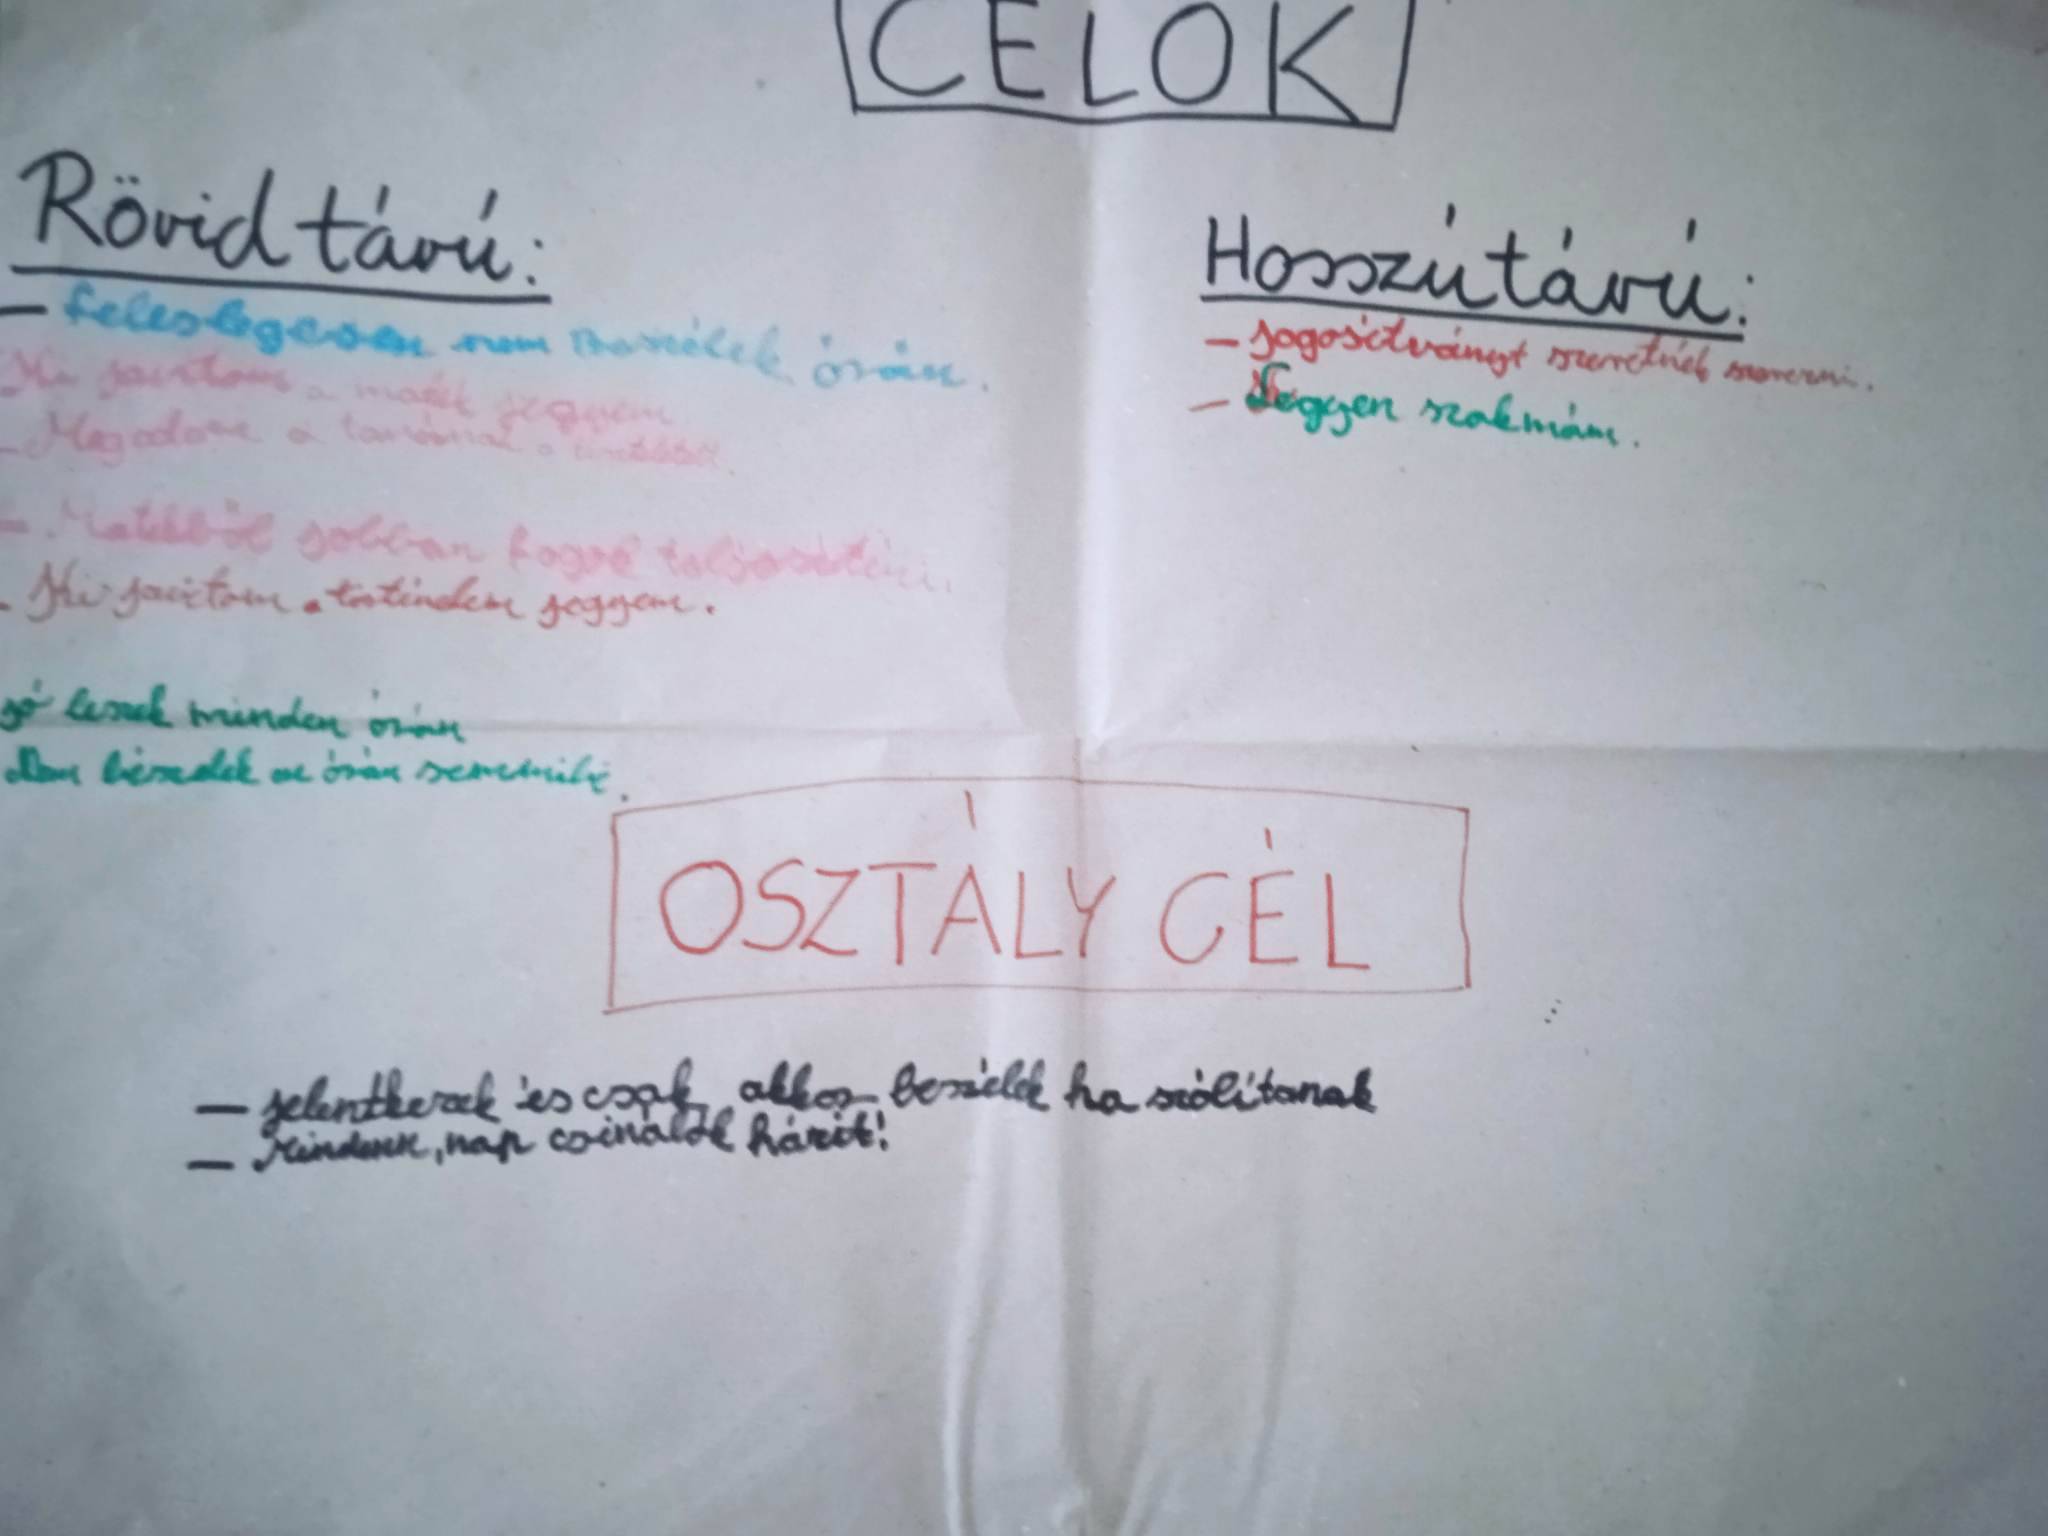 CÉLOK
Rövid távú:
- feleslegesen nem beszélek órán.
Ki javitom a matek jegyem
- Megadom a tanárnak a
- Matekból jobban fogok teljesíteni.
- Ki javitom a történelem jegyem.
jó leszek minden órán
Nem beszélek az órán
Hosszútávú:
- jogosítványt szeretnék szerezni.
- Legyen szakmám.
OSZTÁLY CÉL
- jelentkezek és csak akkor beszélek ha szólítanak
- Mindenk, nap csinálok házit!